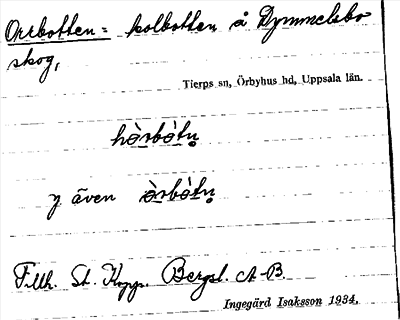 Orrbotten = kolbotten å Dymmelsbo
skog,
Tierps sn, Örbyhus hd, Uppsala län.
hòrbòtṇ
y även òrbòtṇ
Tillh. St. Kopp. Bergsl. A-B.
Ingegärd Isaksson 1934.